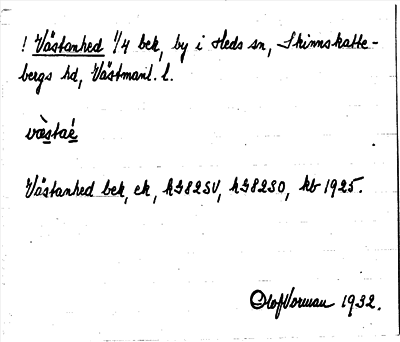 ! Västanhed 1/4 bek, by i Heds sn, Skinnskatte-
bergs hd, Västmanl. l.
vàstaé
Västanhed bek, ek, hG82SV, hG82SO, kb 1925.
Olof Vorman 1932.